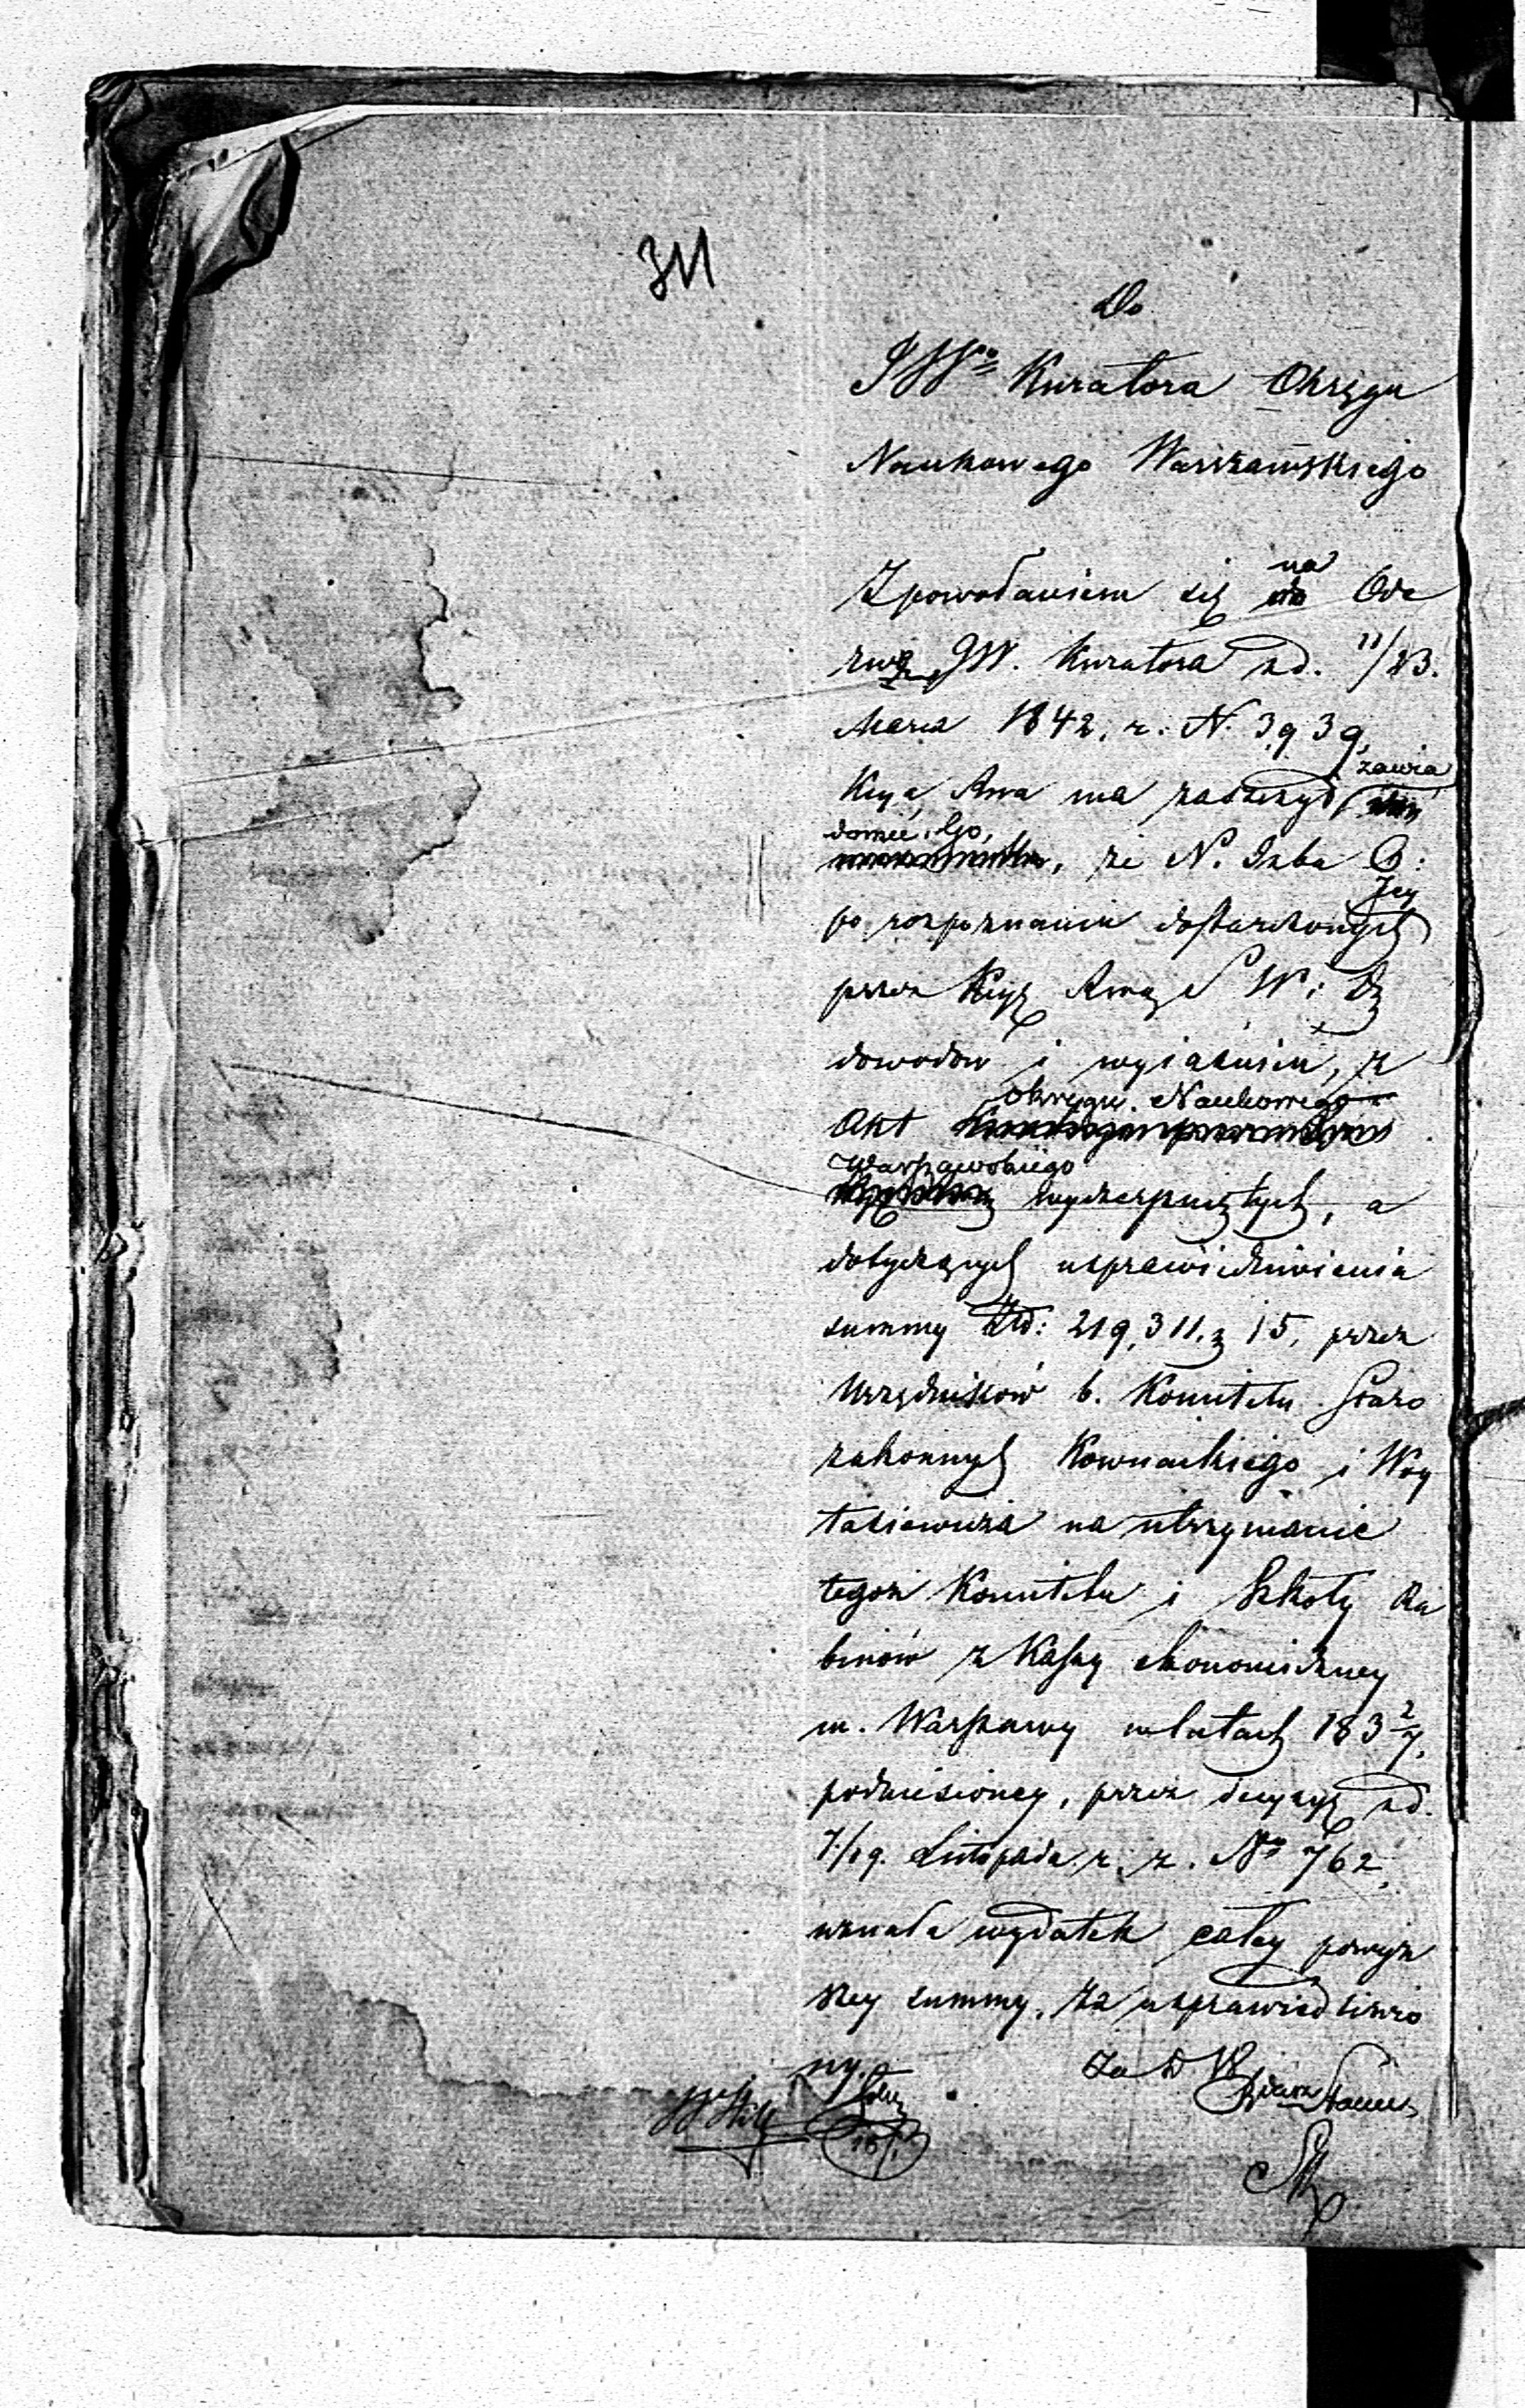 311
Do
JWo Kuratora Okręgu
Naukowego Warszawskiego
Z powołaniem się na Ode
zwę JW. Kuratora z d. 11/23.
Marca 1842. r. N. 3939,
Kcya Rwa ma zaszczyt zawia
domić Go, że N. Izba O:
po rozpoznaniu dostarczonych Jey
przez Kcyę Rwą S W: D
dowodów i wyiaśnień, z
Akt Okręgu Naukowego
Warszawskiego wyczerpniętych, a
dotyczących usprawiedliwienia
summy Złd: 219,311. g 15, przez
Urzędników b. Komitetu Staro
zakonnych Kownackiego i Woy
tasiewicza na utrzymanie
tegoż Komitetu i Szkoły Ra
binów z Kassy ekonomiczney
m. Warszawy w latach 183 2/7,
podniesioney, przez decyzyę z d.
7/19. Listopada r. z. No 762,
uznała wydatek całey powyż
szey summy, za usprawiedliwio
ny.
Za D W